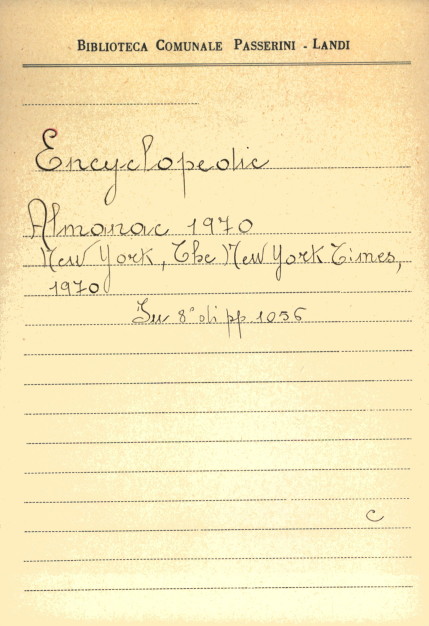 BIBLIOTECA COMUNALE PASSERINI - LANDI
Encyclopedic
Almanac 1970
New York, The New York Times,
1970
In 8° di pp 1056
c